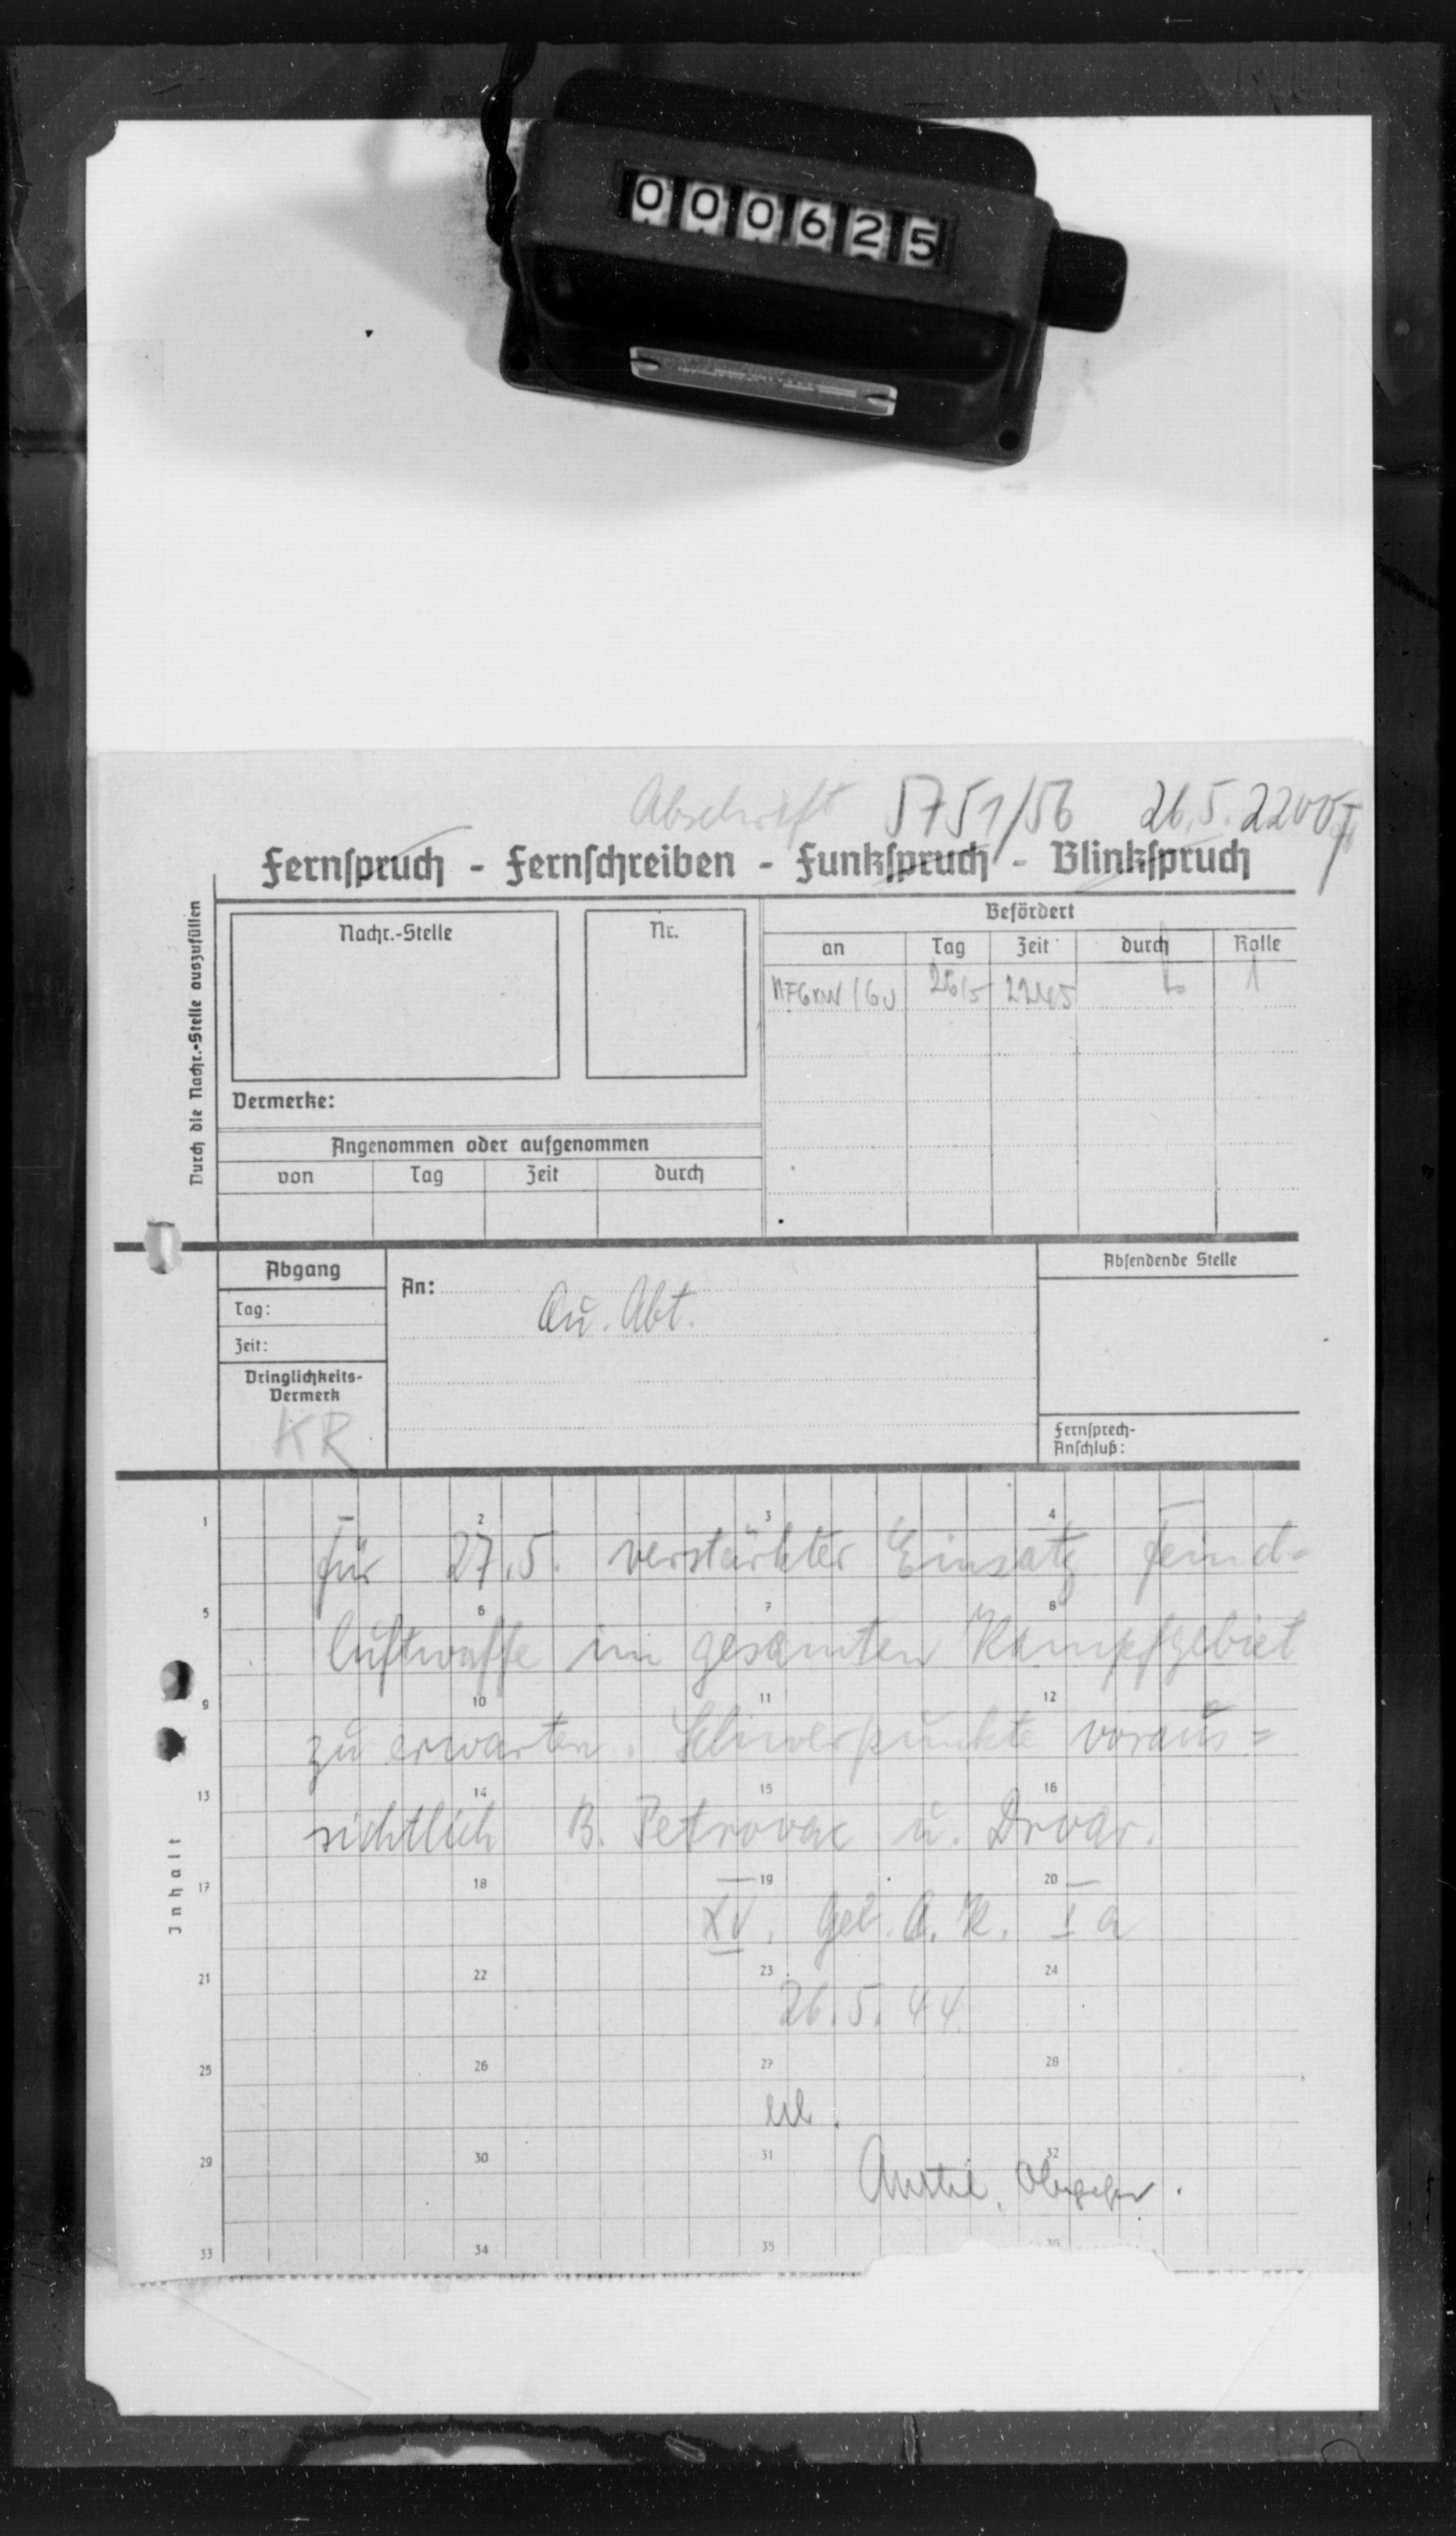 000625
Abschrift 5751/56 26.5. 2200
Fernspruch - Fernschreiben - Funkspruch - Blinkspruch
Durch die Nachr.-Stelle auszufüllen
Nachr.-Stelle
Nr.
Befördert
an Tag Zeit durch Rolle
26/5 2245 1
Vermerke:
Angenommen oder aufgenommen
von Tag Zeit durch
Abgang
Tag:
Zeit:
Dringlichkeits-
Vermerk
KR
An:
Qu. Abt.
Absendende Stelle
Fernsprech-
Anschluß:
Inhalt
1 2 3 4
Für 27.5. verstärkter Einsatz Feind-
5 6 7 8
luftwaffe im gesamten Kampfgebiet
9 10 11 12
zu erwarten. Schwerpunkte voraus=
13 14 15 16
sichtlich B. Petrovac u. Drvar.
17 18 19 20
XV. Geb. A. K. Ia
21 22 23 24
26.5.44.
25 26 27 28
29 30 31 32
33 34 35